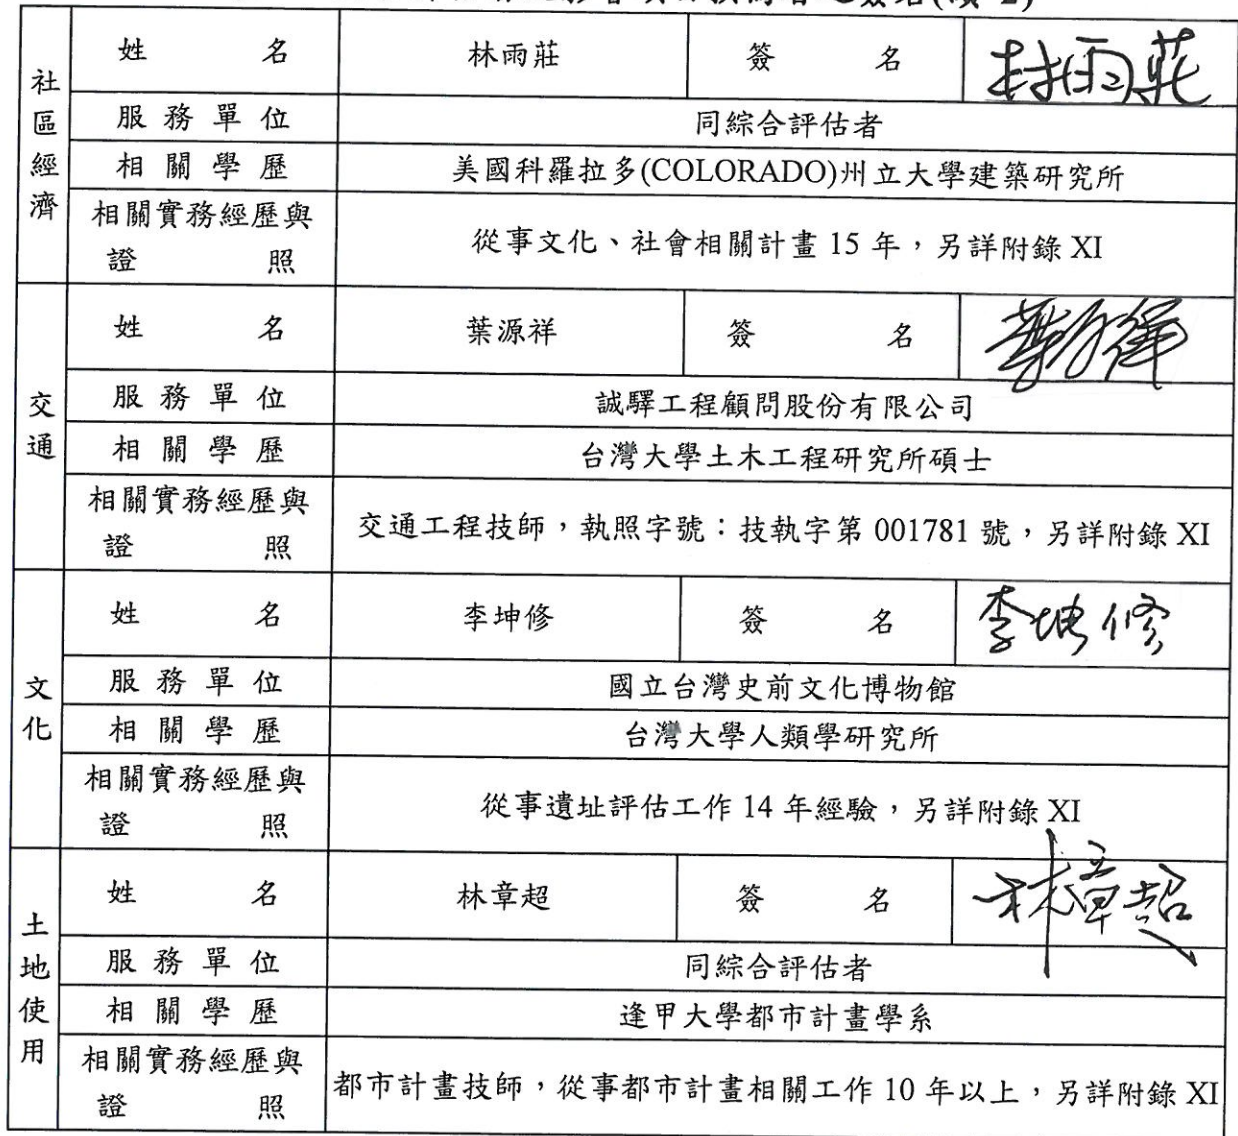 社區經濟
姓 名 林雨莊 簽 名 林雨莊
服務單位 同綜合評估者
相關學歷 美國科羅拉多(COLORADO)州立大學建築研究所
相關實務經歷與
證 照 從事文化、社會相關計畫 15 年，另詳附錄 XI
交通
姓 名 葉源祥 簽 名
服務單位 誠驛工程顧問股份有限公司
相關學歷 台灣大學土木工程研究所碩士
相關實務經歷與
證 照 交通工程技師，執照字號：技執字第 001781 號，另詳附錄 XI
文化
姓 名 李坤修 簽 名 李坤修
服務單位 國立台灣史前文化博物館
相關學歷 台灣大學人類學研究所
相關實務經歷與
證 照 從事遺址評估工作 14 年經驗，另詳附錄 XI
土地使用
姓 名 林章超 簽 名 林章超
服務單位 同綜合評估者
相關學歷 逢甲大學都市計畫學系
相關實務經歷與
證 照 都市計畫技師，從事都市計畫相關工作 10 年以上，另詳附錄 XI